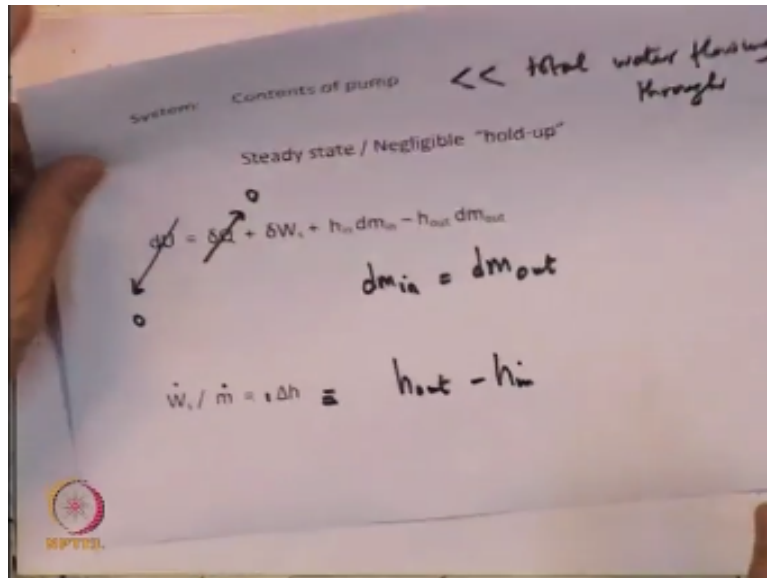 System: Contents of pump << total water flowing through
Steady state / Negligible "hold-up"
0
dU = δQ + δWₛ + hᵢₙ dmᵢₙ – hₒᵤₜ dmₒᵤₜ
dmᵢₙ = dmₒᵤₜ
0
Ẇₛ / ṁ = Δh = hₒᵤₜ - hᵢₙ
NPTEL